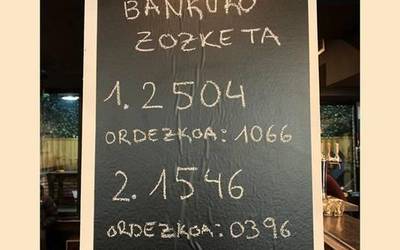 BANKUKO
ZOZKETA
1. 2504
ORDEZKOA: 1066
2. 1546
ORDEZKOA: 0396